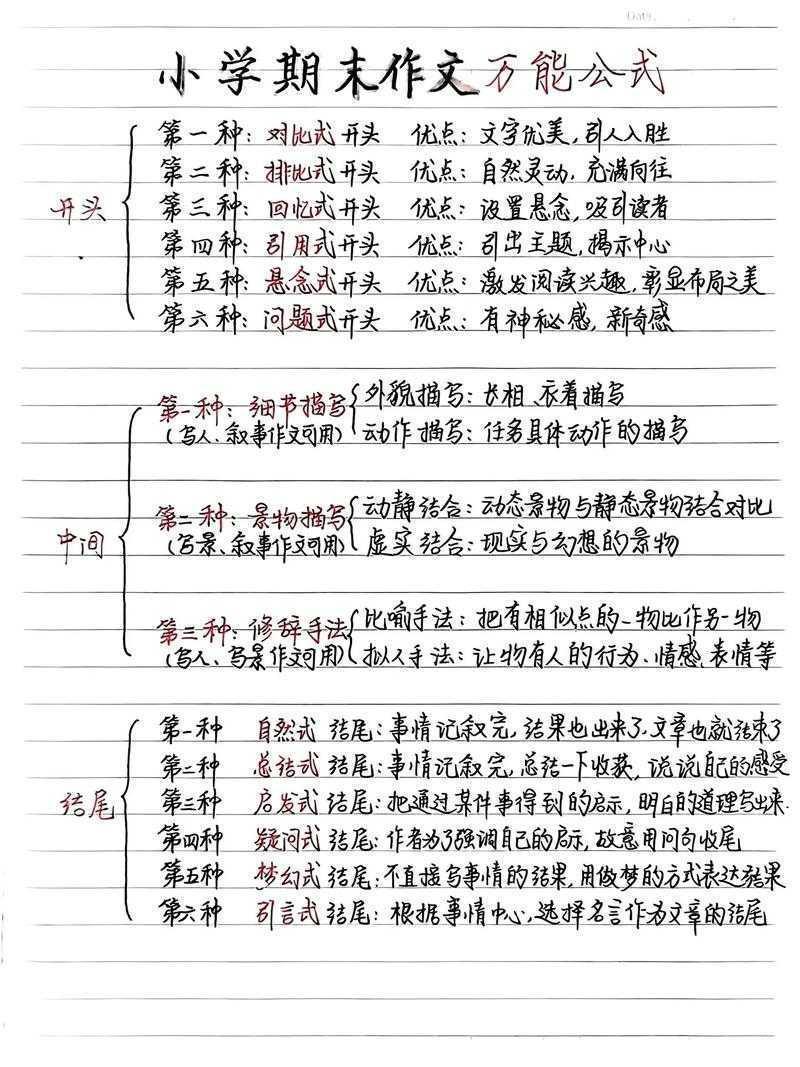 Date.
小学期末作文万能公式
第一种：对比式开头 优点：文字优美，引人入胜
第二种：排比式开头 优点：自然灵动，充满向往
开头
第三种：回忆式开头 优点：设置悬念，吸引读者
第四种：引用式开头 优点：引出主题，揭示中心
第五种：悬念式开头 优点：激发阅读兴趣，彰显布局之美
第六种：问题式开头 优点：有神秘感，新奇感
第一种：细节描写 外貌描写：长相、衣着描写
（写人、叙事作文可用） 动作描写：任务具体动作的描写
第二种：景物描写 动静结合：动态景物与静态景物结合对比
中间
（写景、叙事作文可用） 虚实结合：现实与幻想的景物
第三种：修辞手法 比喻手法：把有相似点的一物比作另一物
（写人、写景作文可用） 拟人手法：让物有人的行为、情感、表情等
第一种 自然式结尾：事情记叙完，结果也出来了，文章也就结束了
第二种 总结式结尾：事情记叙完，总结一下收获，说说自己的感受
结尾
第三种 启发式结尾：把通过某件事得到的启示，明白的道理写出来.
第四种 疑问式结尾：作者为了强调自己的启示，故意用问句收尾
第五种 梦幻式结尾：不直接写事情的结果，用做梦的方式表达结果
第六种 引言式结尾：根据事情中心，选择名言作为文章的结尾